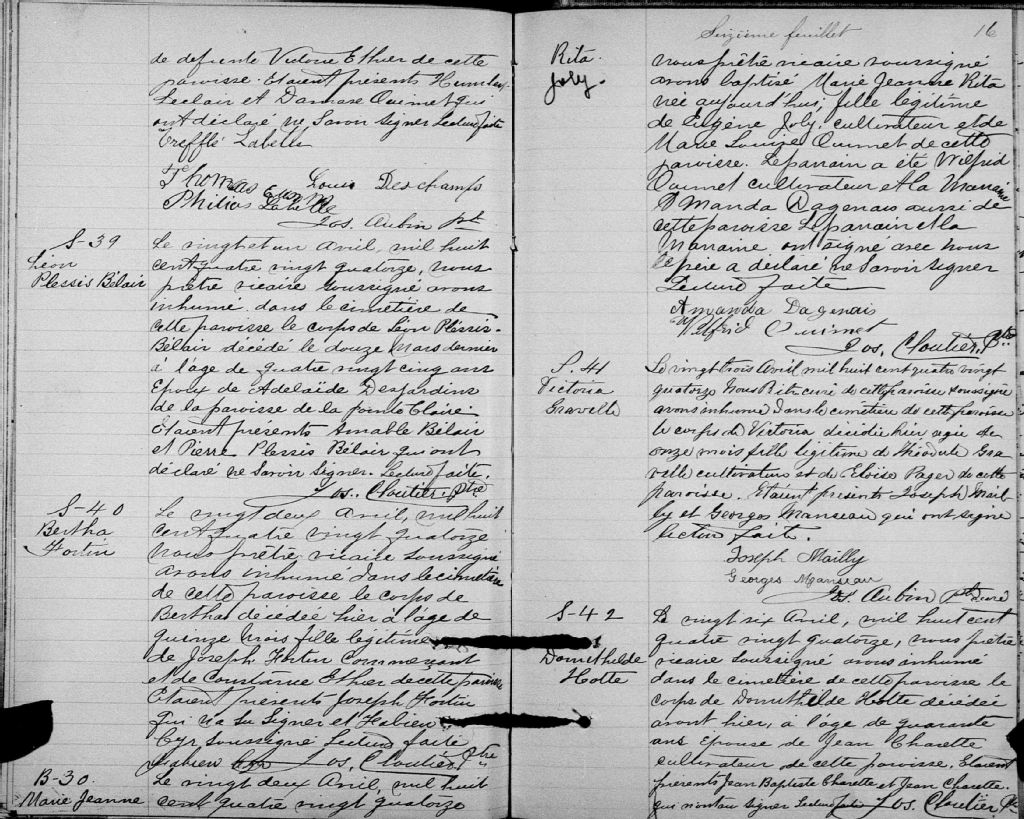 de defunte Victorie Ethier de cette
paroisse. Etaient présents
Leclair et Damase Ouimet qui
ont déclaré ne Savoir Signer Lecture faite
Trefflé Labelle
Thomas Louis Deschamps
Philias Labelle
Jos. Aubin Pt
S-39
Léon
Plessis Bélair
Le vingt et un Avril, mil huit
cent quatre vingt quatorze, nous
prêtre vicaire soussigné avons
inhumé dans le cimetière de
cette paroisse le corps de Léon Plessis-
Bélair décédé le douze Mars dernier
à l'âge de quatre vingt cinq ans
Epoux de Adelaïde Desjardins
de la paroisse de la pointe Claire.
Etaient présents Amable Bélair
et Pierre Plessis Bélair qui ont
déclaré ne Savoir Signer. Lecture faite.
Jos. Cloutier, Ptre
S-40
Bertha
Fortin
Le vingt deux Avril, mil huit
cent quatre vingt quatorze
Nous prêtre vicaire soussigné
avons inhumé dans le cimetière
de cette paroisse le corps de
Bertha décédée hier à l'âge de
quinze mois fille legitime
de Joseph Fortin Commerçant
et de Constance Ethier de cette paroisse
Etaient présents Joseph Fortin
qui n'a su Signer et
Cyr soussigné Lecture faite
Jos. Cloutier, Ptre
B-30.
Marie Jeanne
Le vingt deux Avril, mil huit
cent quatre vingt quatorze
Seizième feuillet 16
Rita
Joly.
nous prêtre vicaire soussigné
avons baptisé Marie Jeanne Rita
née aujourd'hui, fille légitime
de Eugène Joly, cultivateur et de
Marie Louise Ouimet de cette
paroisse. Le parrain a été Wilfrid
Ouimet cultivateur et la Marraine
Amanda Dagenais aussi de
cette paroisse Le parrain et la
Marraine ont signé avec nous
le père a déclaré ne Savoir signer
Lecture faite
Amanda Dagenais
Wilfrid Ouimet
Jos. Cloutier, Ptre
S. 41
Victoria
Gravelle
Le vingt trois Avril mil huit cent quatre vingt
quatorze Nous Ptre curé de cette paroisse soussigné
avons inhumé dans le cimetière de cette paroisse
le corps de Victoria décédée hier agée de
onze mois fille légitime de Théodule Gra
velle cultivateur et de Eloise Pager de cette
paroisse. Etaient presents Joseph Mail-
ly et Georges Manseau qui ont signé
lecture faite.
Joseph Mailly
Georges Manseau
Jos. Aubin Ptre curé
S-42
Domithilde
Hotte
Le vingt six Avril, mil huit cent
quatre vingt quatorze, nous prêtre
vicaire soussigné avons inhumé
dans le cimetière de cette paroisse le
corps de Domithilde Hotte décédée
avant hier, à l'âge de quarante
ans Epouse de Jean Charette
cultivateur de cette paroisse. Etaient
présents Jean Baptiste Charette et Jean Charette.
qui n'ont su signer Lecture faite Jos. Cloutier, Ptre